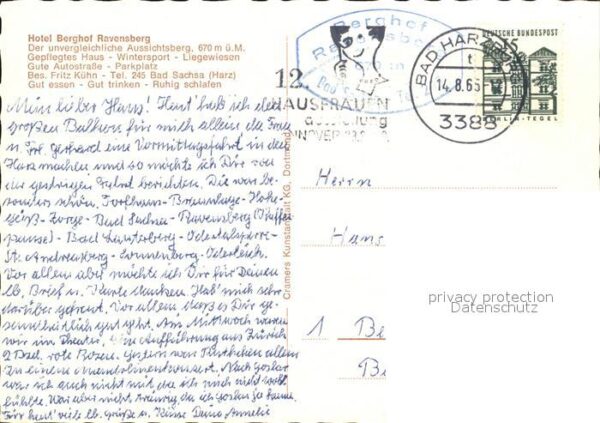 Hotel Berghof Ravensberg
Der unvergleichliche Aussichtsberg, 670 m ü.M.
Gepflegtes Haus - Wintersport - Liegewiesen
Gute Autostraße - Parkplatz
Bes. Fritz Kühn - Tel. 245 Bad Sachsa (Harz)
Gut essen - Gut trinken - Ruhig schlafen
Mein lieber Hans! Heut' hab ich den
großen Balkon für mich allein, da Frau
u. Frl. Gerhard eine Vormittagsfahrt in den
Harz machen und so möchte ich Dir von
der gestrigen Fahrt berichten. Die war be-
sonders schön. Torfhaus - Braunlage - Hohe-
geiß - Zorge - Bad Sachsa - Ravensberg (Kaffee-
pause) - Bad Lauterberg - Odertalsperre -
St. Andreasberg - Sonnenberg - Oderteich.
Vor allem aber möchte ich Dir für Deinen
lb. Brief u. Karte danken. Hab' mich sehr
darüber gefreut. Vor allem, daß es Dir ge-
sundheitlich gut geht. Am Mittwoch waren
wir im Theater, eine Aufführung aus Zürich
2 Dzd. rote Rosen. Gestern war
zu einem Mandolinenkonzert. Nach Goslar
war ich auch nicht mit, da ich mich nicht wohl
fühlte. War aber nicht traurig, da ich Goslar ja kenne.
Für heut' viele lb. Grüße u. Küsse Deine Annelie
Cramers Kunstanstalt KG, Dortmund
Berghof
Ravensberg
12.
HAUSFRAUEN
ausstellung
HANNOVER
BAD HARZ
14.8.65
3388
DEUTSCHE BUNDESPOST
15
BERLIN-TEGEL
Herrn
Hans
1 Be
Be
privacy protection
Datenschutz